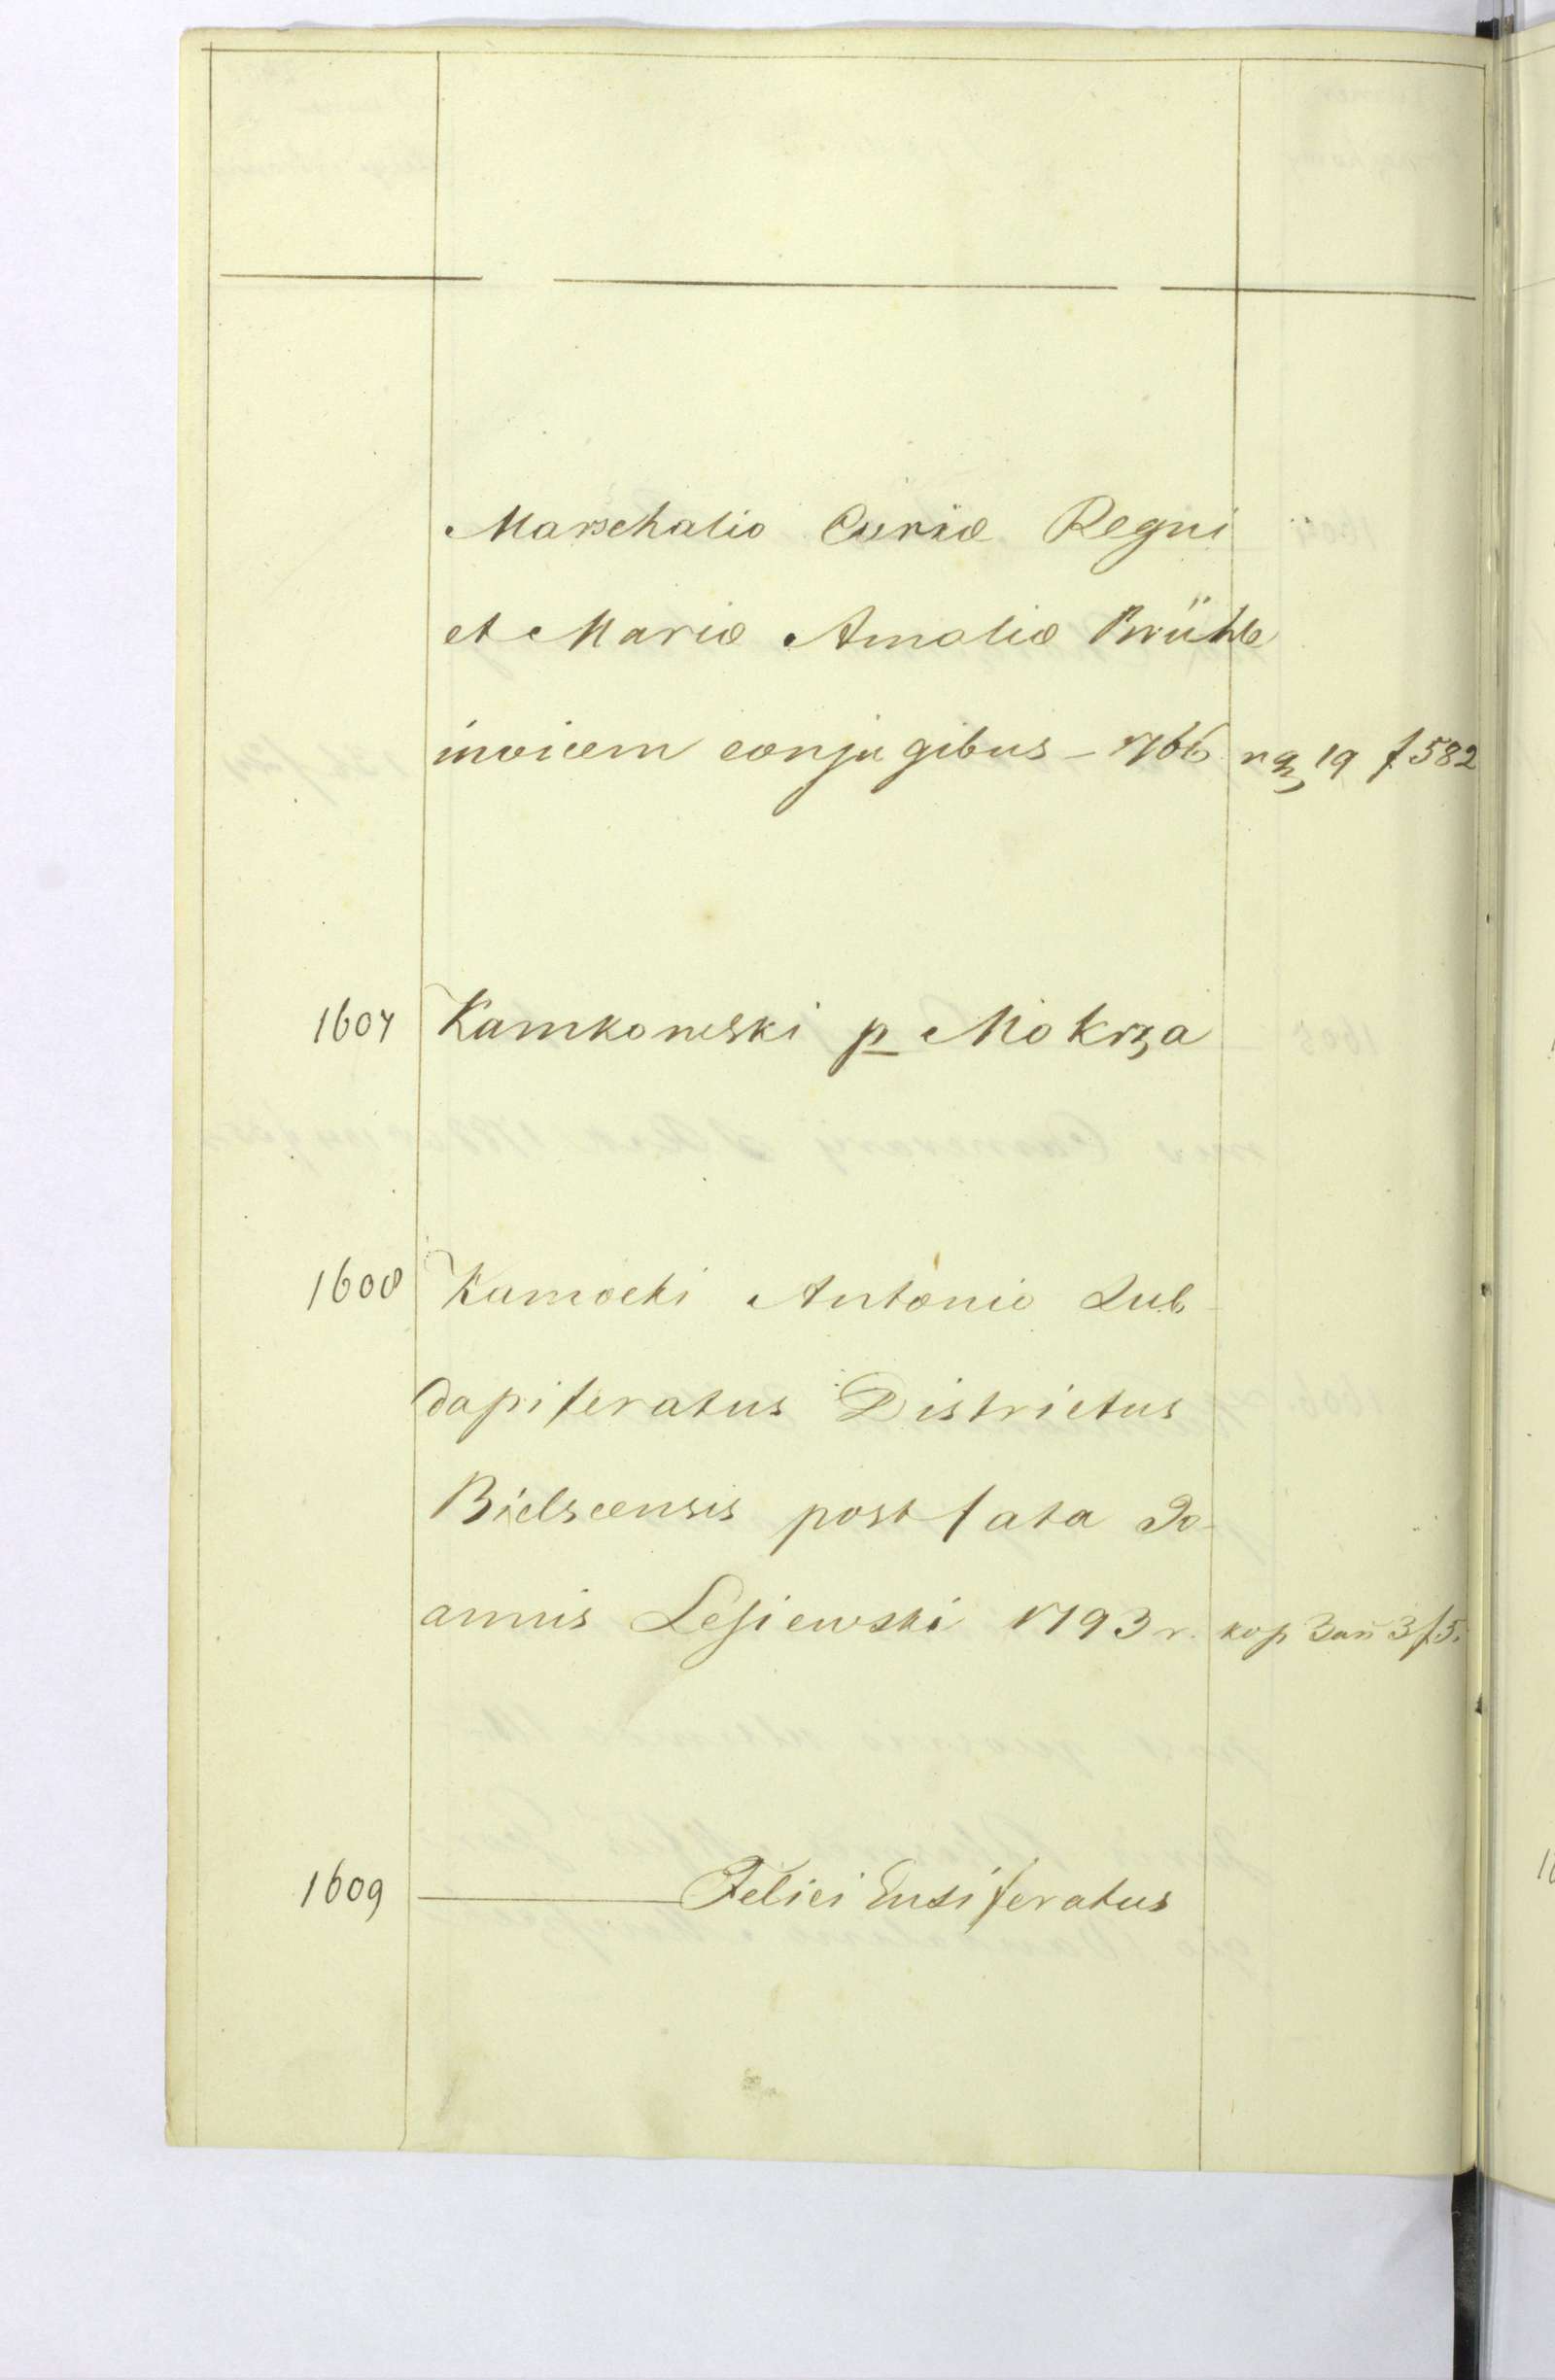 Marschalio Curiæ Regni
et Mariæ Amaliæ Brühl
invicem conjugibus – 1766 rg 19 f 582
1607 Kamkowski p Mokrza
1608 Kamocki Antonio Sub
dapiferatus Districtus
Bielscensis post fata Jo-
annis Lesiewski 1793 r. kop Zań 3 f 5.
1609 ——— Felici Ensiferatus